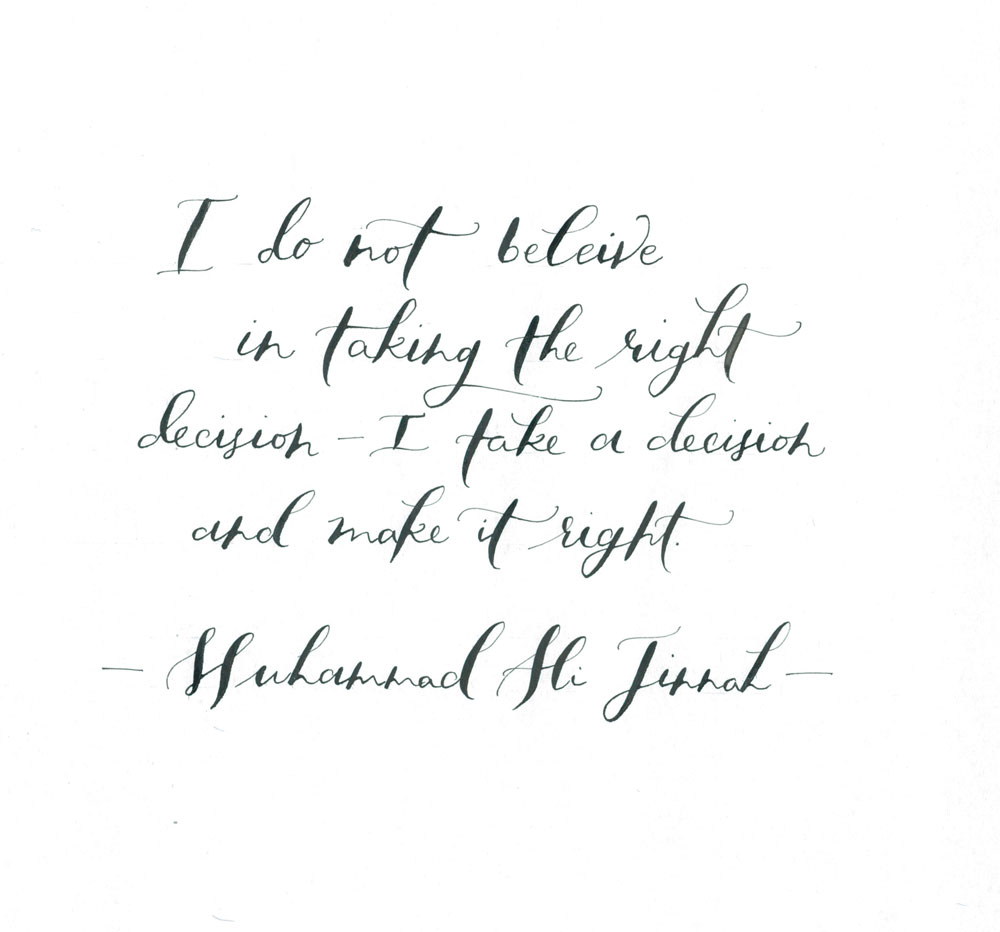 I do not beleive
in taking the right
decision - I take a decision
and make it right.
- Muhammad Ali Jinnah -